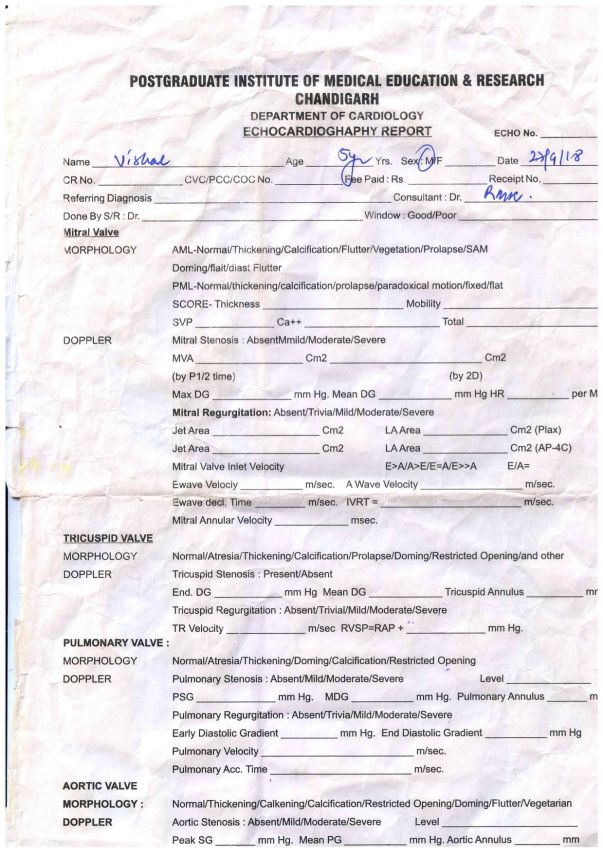 POSTGRADUATE INSTITUTE OF MEDICAL EDUCATION & RESEARCH
CHANDIGARH
DEPARTMENT OF CARDIOLOGY
ECHOCARDIOGHAPHY REPORT ECHO No. ______
Name Vishal Age 5yr Yrs. Sex : M/F Date 23/9/18
CR No. ______ CVC/PCC/COC No. ______ Fee Paid : Rs ______ Receipt No. ______
Referring Diagnosis ______ Consultant : Dr.
Done By S/R : Dr. ______ Window : Good/Poor ______
Mitral Valve
MORPHOLOGY AML-Normal/Thickening/Calcification/Flutter/Vegetation/Prolapse/SAM
Doming/flait/diast Flutter
PML-Normal/thickening/calcification/prolapse/paradoxical motion/fixed/flat
SCORE- Thickness ______ Mobility ______
SVP ______ Ca++ ______ Total ______
DOPPLER Mitral Stenosis : AbsentMmild/Moderate/Severe
MVA ______ Cm2 ______ Cm2
(by P1/2 time) (by 2D)
Max DG ______ mm Hg. Mean DG ______ mm Hg HR ______ per M
Mitral Regurgitation: Absent/Trivia/Mild/Moderate/Severe
Jet Area ______ Cm2 LA Area ______ Cm2 (Plax)
Jet Area ______ Cm2 LA Area ______ Cm2 (AP-4C)
Mitral Valve Inlet Velocity E>A/A>E/E=A/E>>A E/A=
Ewave Velociy ______ m/sec. A Wave Velocity ______ m/sec.
Ewave decl. Time ______ m/sec. IVRT = ______ m/sec.
Mitral Annular Velocity ______ msec.
TRICUSPID VALVE
MORPHOLOGY Normal/Atresia/Thickening/Calcification/Prolapse/Doming/Restricted Opening/and other
DOPPLER Tricuspid Stenosis : Present/Absent
End. DG ______ mm Hg Mean DG ______ Tricuspid Annulus ______ mr
Tricuspid Regurgitation : Absent/Trivial/Mild/Moderate/Severe
TR Velocity ______ m/sec RVSP=RAP + ______ mm Hg.
PULMONARY VALVE :
MORPHOLOGY Normal/Atresia/Thickening/Doming/Calcification/Restricted Opening
DOPPLER Pulmonary Stenosis : Absent/Mild/Moderate/Severe Level ______
PSG ______ mm Hg. MDG ______ mm Hg. Pulmonary Annulus ______ m
Pulmonary Regurgitation : Absent/Trivia/Mild/Moderate/Severe
Early Diastolic Gradient ______ mm Hg. End Diastolic Gradient ______ mm Hg
Pulmonary Velocity ______ m/sec.
Pulmonary Acc. Time ______ m/sec.
AORTIC VALVE
MORPHOLOGY : Normal/Thickening/Calkening/Calcification/Restricted Opening/Doming/Flutter/Vegetarian
DOPPLER Aortic Stenosis : Absent/Mild/Moderate/Severe Level ______
Peak SG ______ mm Hg. Mean PG ______ mm Hg. Aortic Annulus ______ mm